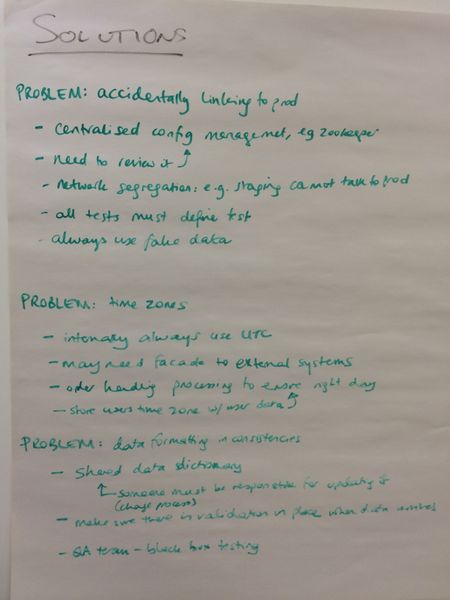 SOLUTIONS
PROBLEM: accidentally linking to prod
- centralised config managemet, eg zookeeper
- need to review it
- network segregation: e.g. staging cannot talk to prod
- all tests must define test
- always use fake data
PROBLEM: time zones
- internally always use UTC
- may need facade to external systems
- order handling processing to ensure right day
- store users time zone w/ user data
PROBLEM: data formatting inconsistencies
- Shared data dictionary
someone must be responsible for updating it
(change process)
- make sure there is validation in place when data arrives
- QA team - black box testing